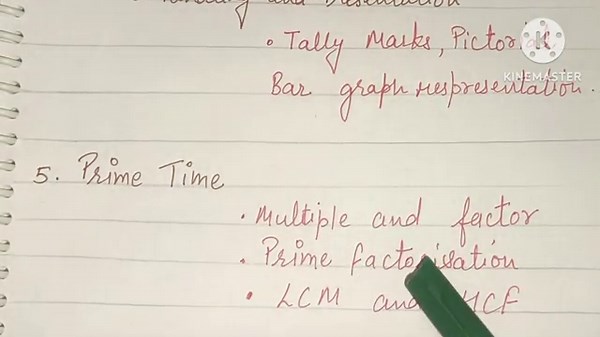 and
• Tally Marks,
KINEMASTER
Bar graph respresentation.
5. Prime Time
• Multiple and factor
• Prime factorisation
• LCM and HCF